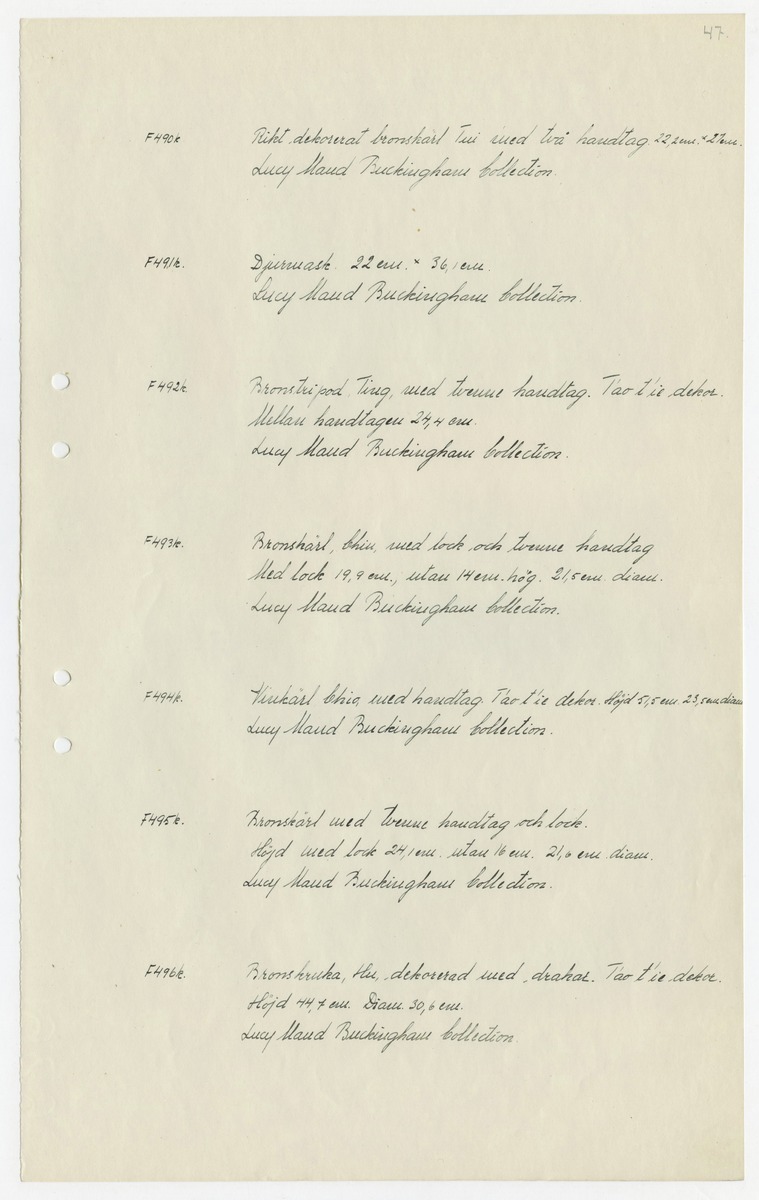 47.
F490k Rikt dekorerat bronskärl Tui med två handtag. 22,2cm. × 27cm.
Lucy Maud Buckingham Collection.
F491k. Djurmask. 22 cm. × 36,1 cm.
Lucy Maud Buckingham Collection.
F492k. Bronstripod, Ting, med tvenne handtag. T'ao t'ie dekor.
Mellan handtagen 24,4 cm.
Lucy Maud Buckingham Collection.
F493k. Bronskärl, Chiu, med lock och tvenne handtag
Med lock 19,9 cm., utan 14 cm. hög. 21,5 cm. diam.
Lucy Maud Buckingham Collection.
F494k. Vinkärl Chio, med handtag. T'ao t'ie dekor. Höjd 51,5 cm. 23,5 cm diam
Lucy Maud Buckingham Collection.
F495k. Bronskärl med tvenne handtag och lock.
Höjd med lock 24,1 cm. utan 16 cm. 21,6 cm. diam.
Lucy Maud Buckingham Collection.
F496k. Bronskruka, Hu, dekorerad med drakar. T'ao t'ie dekor.
Höjd 44,7 cm. Diam. 30,6 cm.
Lucy Maud Buckingham Collection.